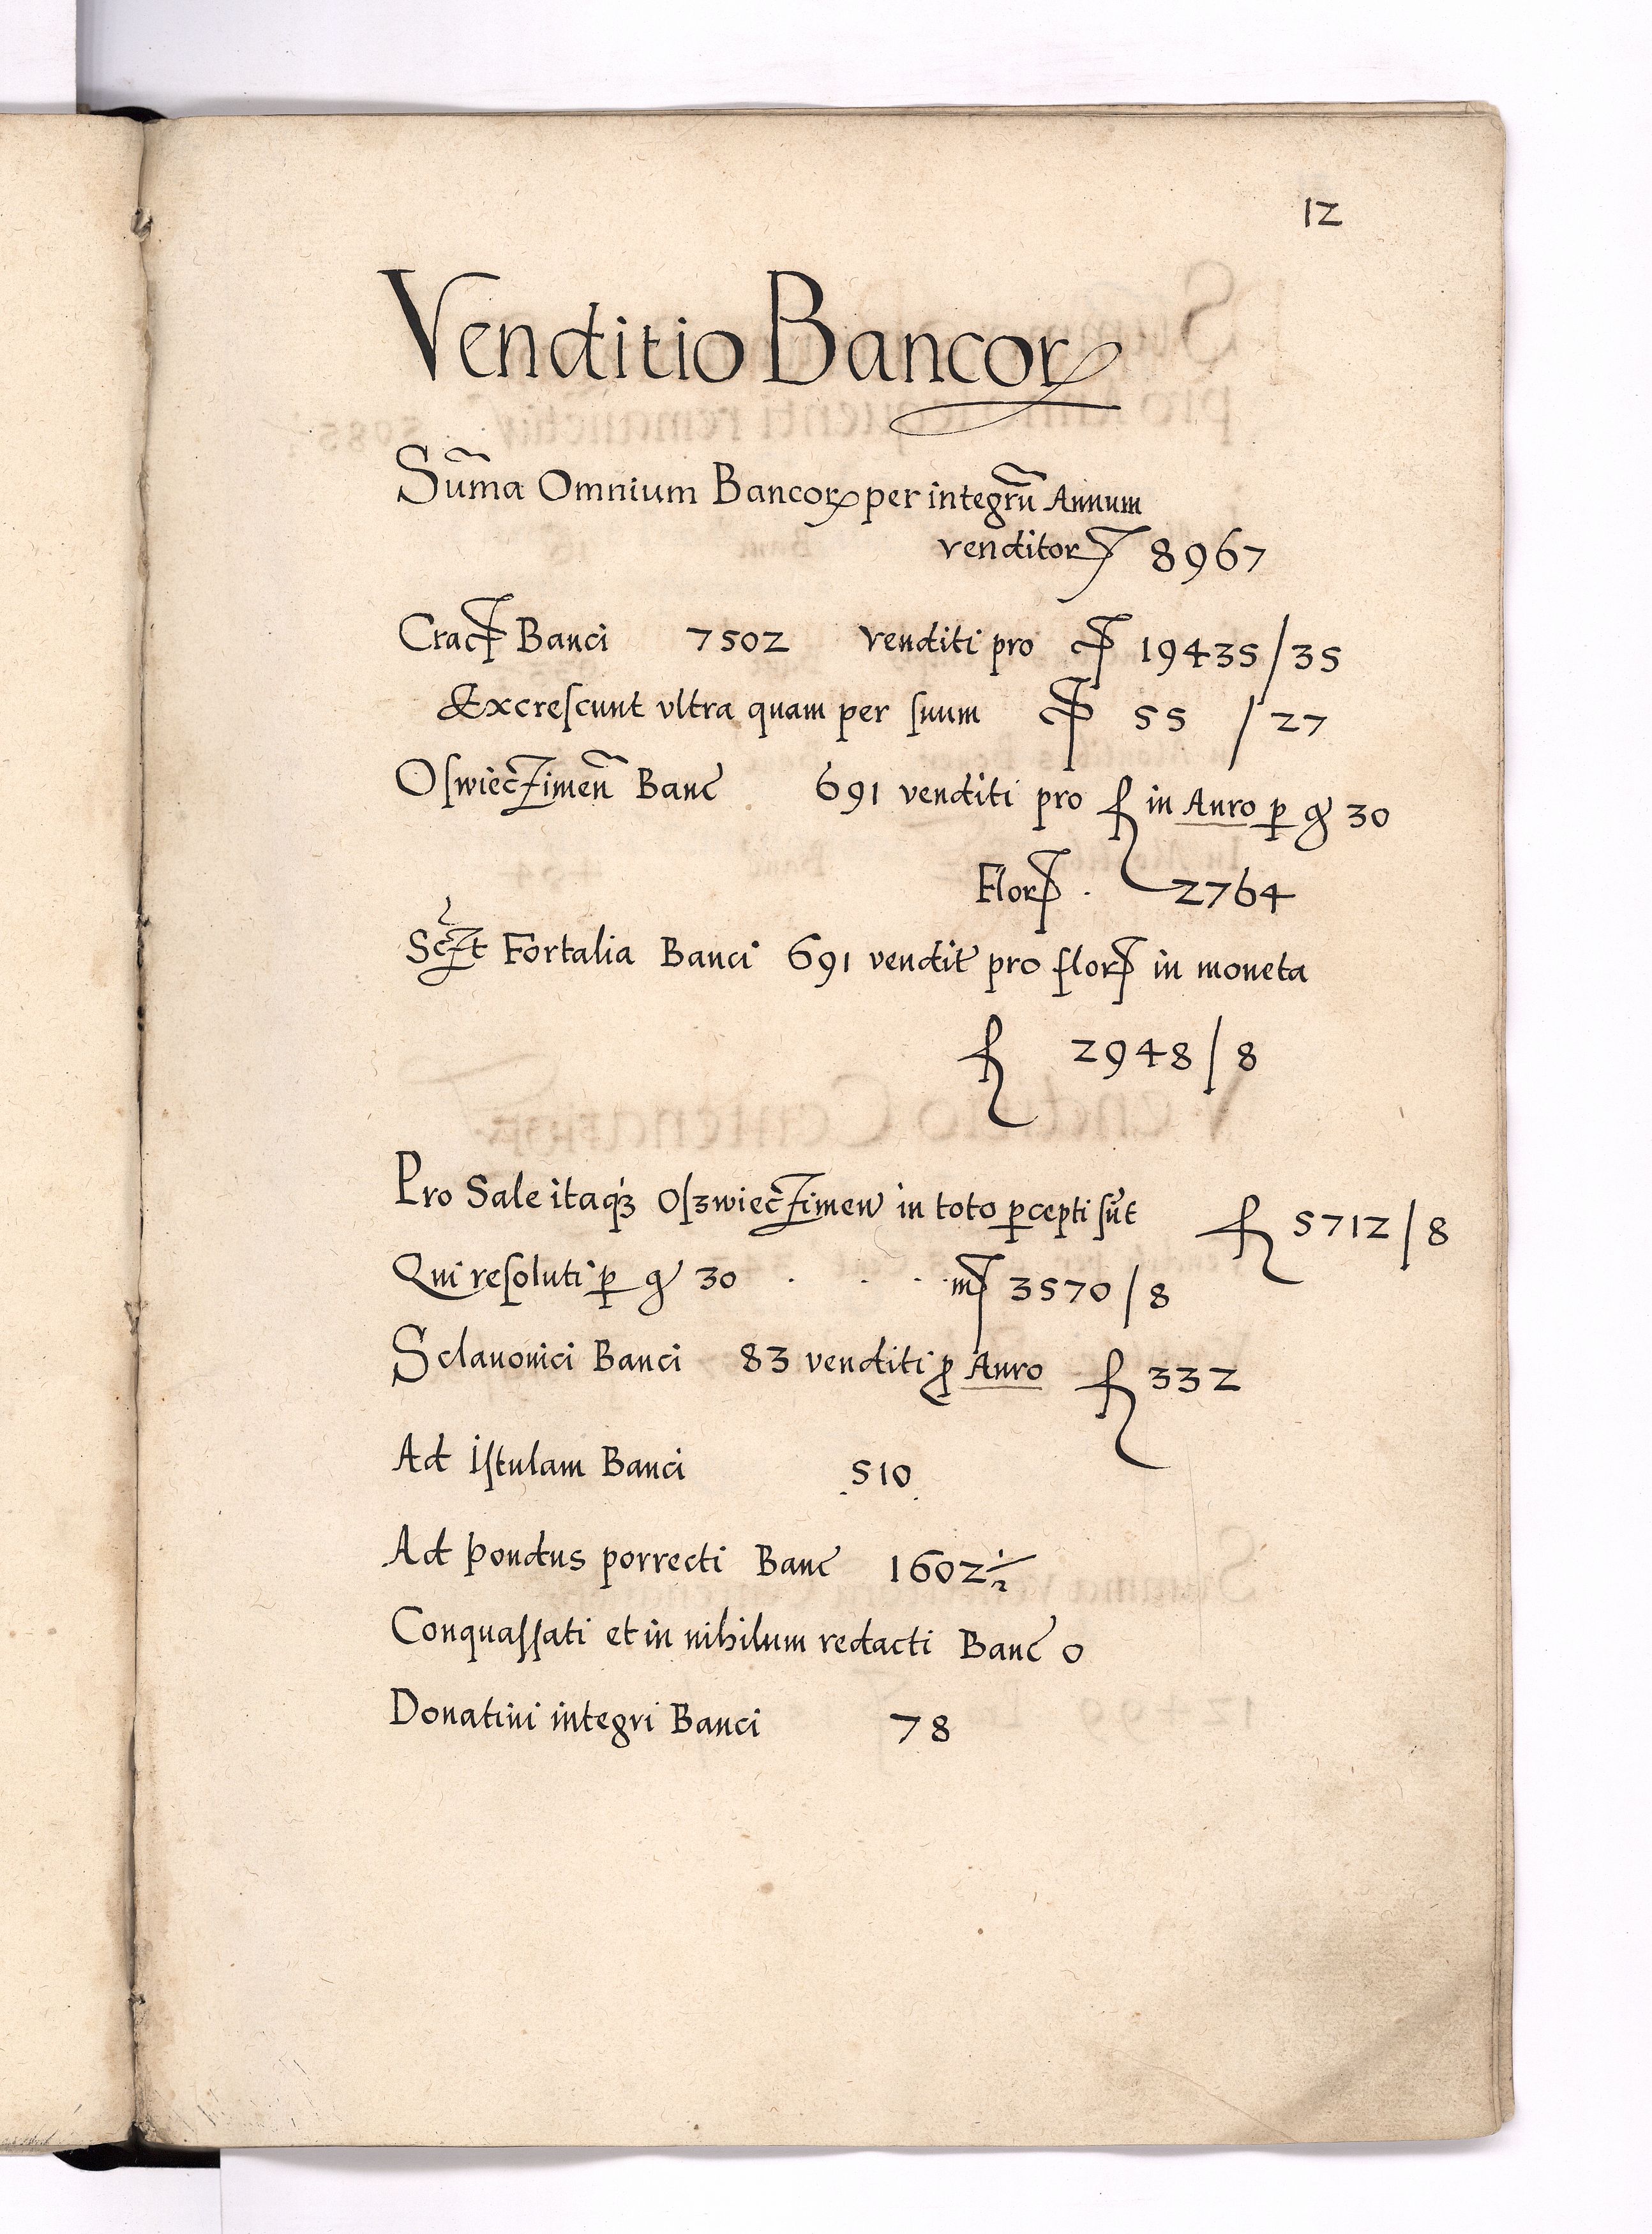 12
Venditio Bancorꝝ
Sūma Omnium Bancorꝝ per integrū Annum
venditorꝝ 8967
Crac Banci 7502 venditi pro 19435/35
Excreſcunt vltra quam per ſuum 55 /27
Oſwieczimen̄ Banc 691 venditi pro f in Auro ꝑ gͬ 30
Flor . 2764
Fortalia Banci 691 vendit pro flor in moneta
f 2948/8
Pro Sale itaqꝫ Oſzwieczimen in toto ꝑcepti sūt f 5712/8
Qui reſoluti ꝑ gͬ 30 . . . . m 3570/8
Sclauonici Banci 83 venditi ꝓ Auro f 332
Ad Iſtulam Banci 510
Ad pondus porrecti Banc 1602½
Conquaſſati et in nihilum redacti Banc 0
Donatini integri Banci 78